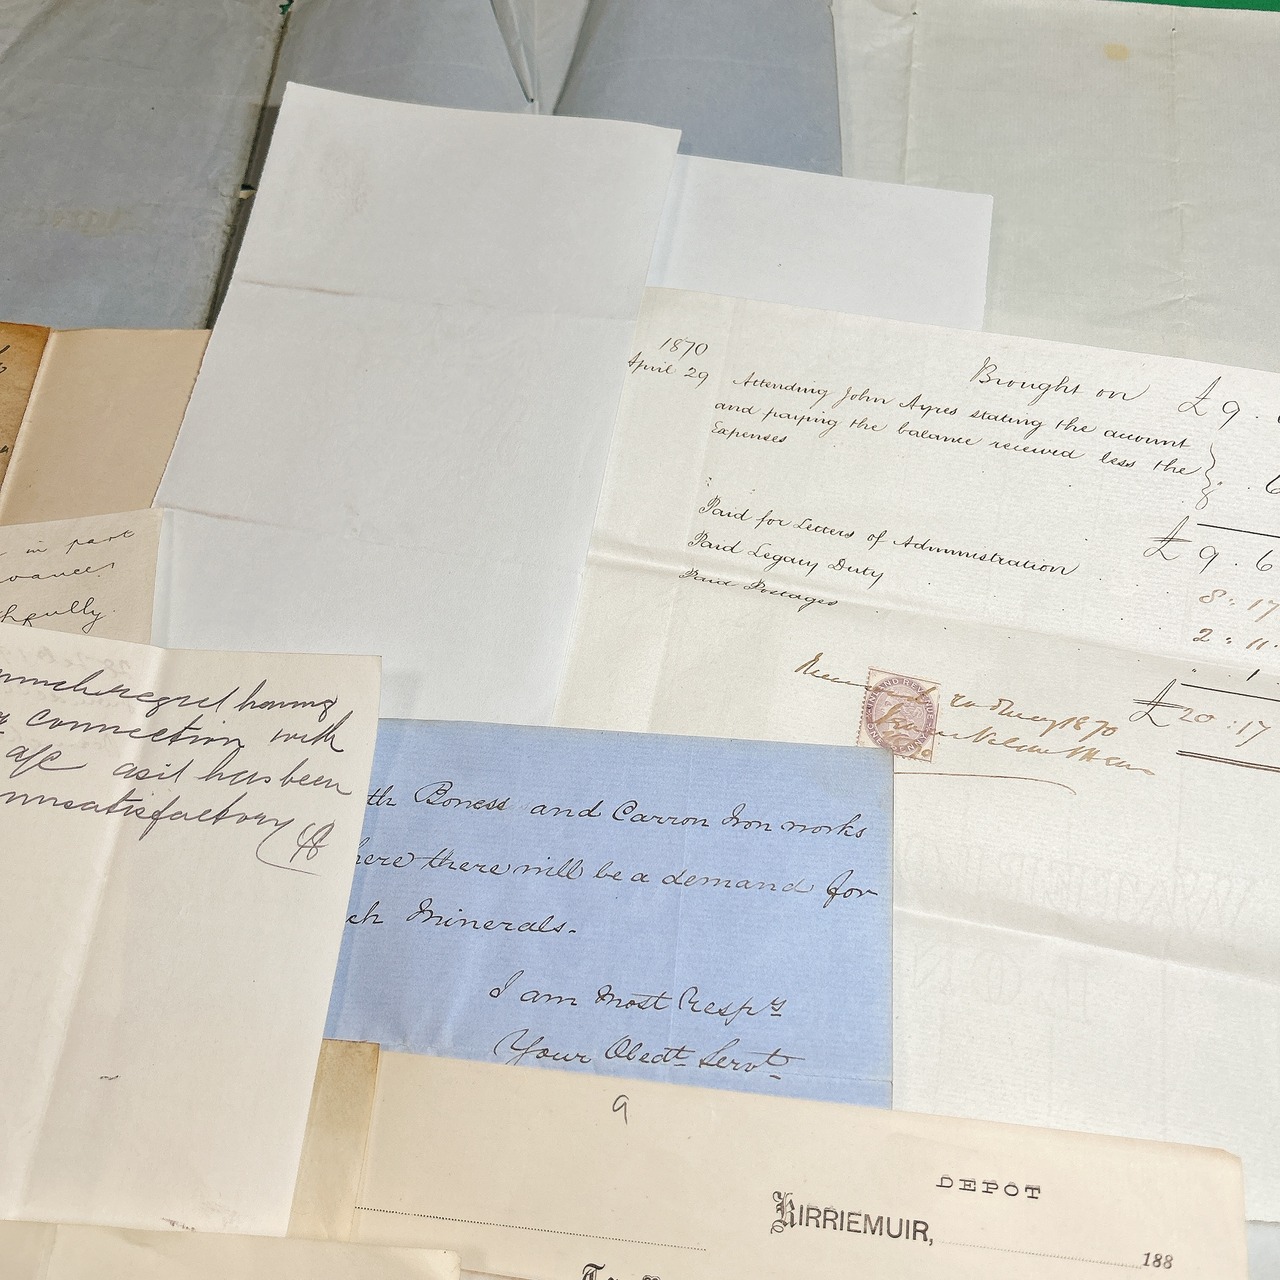 1870
April 29
Brought on £9.
Attending John Ayres stating the account
and paying the balance received less the
Expenses
£9.6
Paid for Letters of Administration
8:17
Paid Legacy Duty
2:11
Paid Postages
1
£20:17
20 May 1870
INLAND REVENUE
ONE PENNY
in part
regret having
connection with
a/c as it has been
unsatisfactory
Boness and Carron Iron works
there will be a demand for
Minerals.
I am most Respy
Your Obedt Servt
9
DEPOT
KIRRIEMUIR,
188